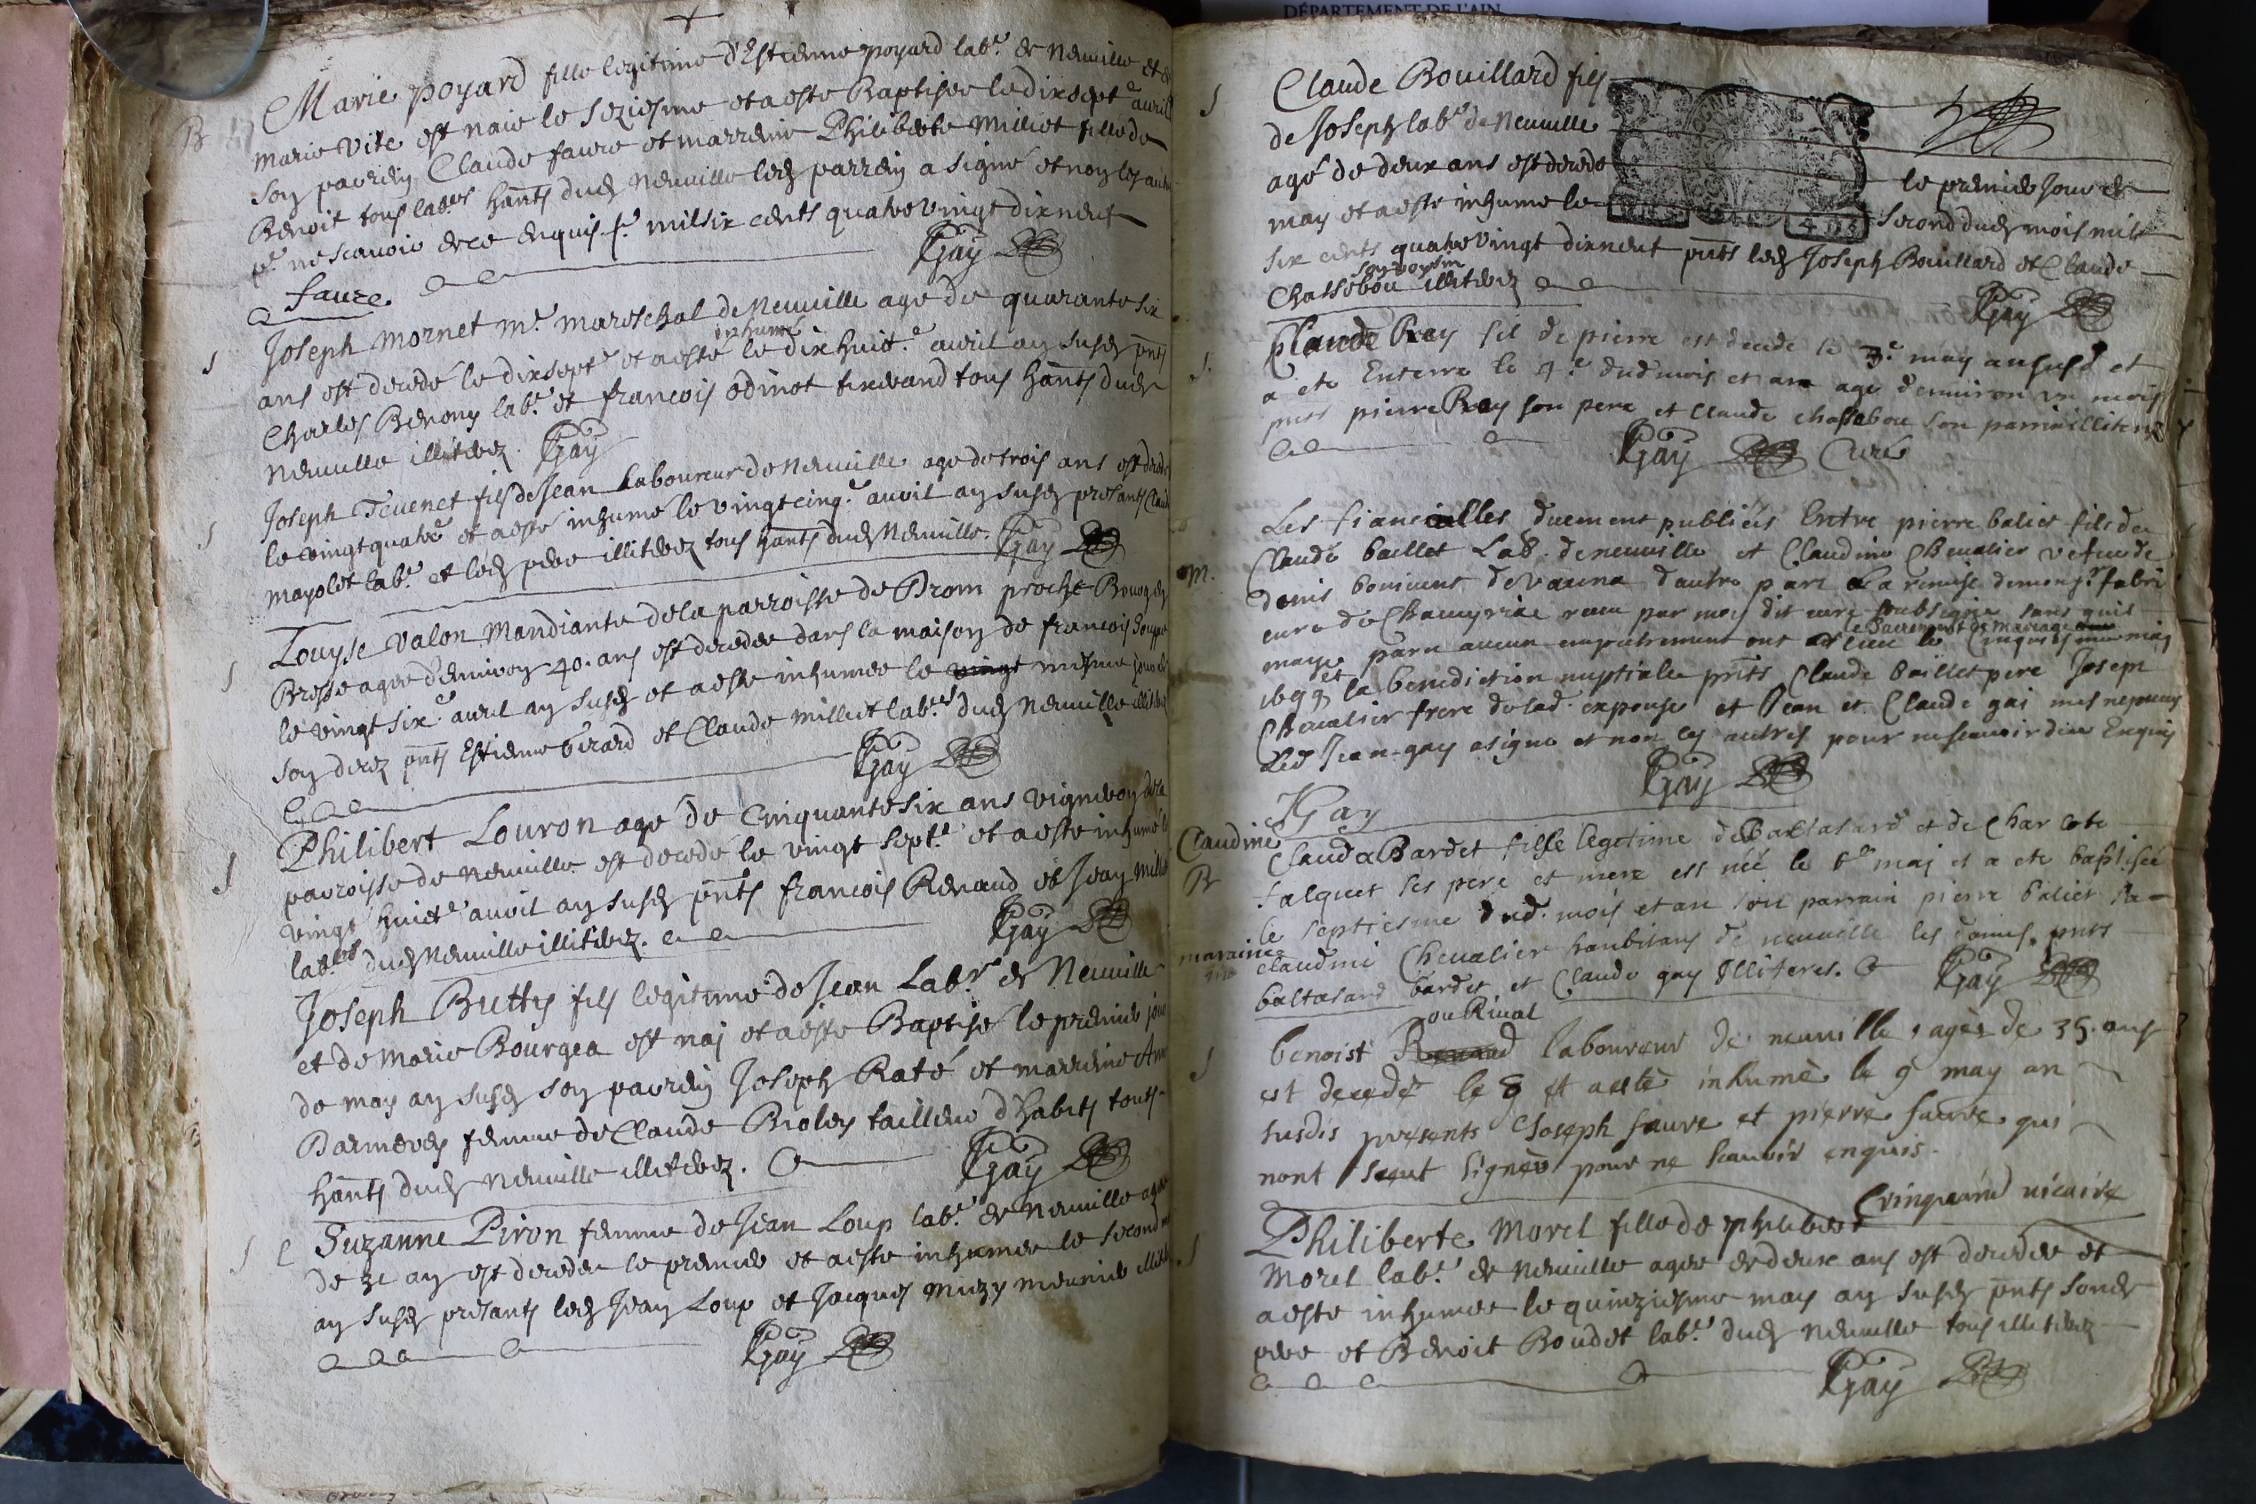 Marie poyard fille legitime d'Estienne poyard lab.r de Neuville et de
marie Vite est naie le seziesme et a esté Baptisee le dixsept.e auril
son parrein Claude faure et marreine Philiberte Milliet fille de
Benoit tous lab.rs hants dud Neuville led parrein a signé et non les autres
p.r ne scavoir de ce enquis. f.t mil six cents quatre vingt dix neuf
Gay
faure
Joseph Mornet m.e mareschal de Neuville agé de quarante six
ans est decedé le dixsept.e et a esté inhumé le dix huit.e auril an susd pnts
Charles Benony lab.r et francois odinot tixerand tous hants dud
Neuville illiterez. Gay
Joseph Teuenet fils de Jean Laboureur de Neuville agé de trois ans est decedé
le vingt quatre et a esté inhumé le vingt cinq.e auril an susd presants Claude
mayolet lab.r et led pere illiterez tous hants dud Neuville. Gay
Louyse Valon Mandiante de la parroisse de Drom proche Bourg en
Bresse agee d'enuiron 40. ans est decedee dans la maison de francois
le vingt six.e auril an susd et a esté inhumee le mesme jour de
son decez pnts Estienne Girard et Claude milliet lab.rs dud Neuville illiterez
Gay
Philibert Louron agé de Cinquante six ans Vigneron de la
parroisse de Neuville est decedé le vingt sept.e et a esté inhumé le
vingt huict.e auril an susd pnts francois Renaud et Jean
lab.rs dud Neuville illiterez.
Gay
Joseph Buttys fils legitime de Jean Lab.r de Neuville
et de Marie Bourgea est nai et a esté Baptisé le premier jour
de may an susd son parrein Joseph Raté et marreine Anne
femme de Claude Broley tailleur d'habits touts
hants dud Neuville illiterez.
Gay
Suzanne Piron femme de Jean Loup lab.r de Neuville agee
de an est decedee le premier et a esté inhumee le second may
an susd presants led Jean Loup et Jacques Muzy meunier illiterez
Gay
DÉPARTEMENT DE L'AIN
Claude Bouillard fils
de Joseph lab.r de Neuville
agé de deux ans est decedé
le premier jour de
may et a esté inhumé le
second dud mois mil
six cents quatre vingt dix neuf pnts led Joseph Bouillard et Claude
son voysin
Chassebou illiterez
Gay
Claude Ray fil de pierre est decede le 3.e may an susd et
a ete Enterre le 4.e dud mois et an age denuiron un mois
pnts pierre Ray son pere et Claude chassebou son parrin illiterez
Gay Curé
Les fiancialles duement publiéés Entre pierre baliet fils de
Claude baillet Lab. de neuuille et Claudine Cheualier vefue de
denis d'autre part
cure de Chaueyriac receu par moy dit cure soubsigné sans quil
may paru aucun empechement ont le Sacrement de mariage may
1699 et la benediction nuptialle pnts Claude baillet pere Joseph
Cheualier frere de lad. expouse et Jean et Claude gai mes nepueus
Led Jean gay a signe et non les autres pour ne scauoir dieu Enquis
Gay
JGay
Claudine
Clauda Bardet fille legitime de Baltasard et de Charlote
falquet ses pere et mere est néé le maj et a ete baptiséé
le septiesme dud. mois et an son parrain pierre baliet sa
maraine
claudine Cheualier haubitans de neuuille les domes. pnts
baltasard bardet et Claude gay Illiteres.
Gay
ou Riuat
benoist laboureur de neuuille, agés de 35. ans
est decede le 8 et a esté inhumé le 9 may an
susdis presents Joseph faure et pierre faure qui
nont sceut signér pour ne scauoir enquis.
uicaire
Philiberte Morel fille de philibert
Morel lab.r de Neuville agee de deux ans est decedee et
a esté inhumee le quinziesme may an susd pnts sond
pere et Benoit Boudet lab.r dud Neuville tous illiterez
Gay